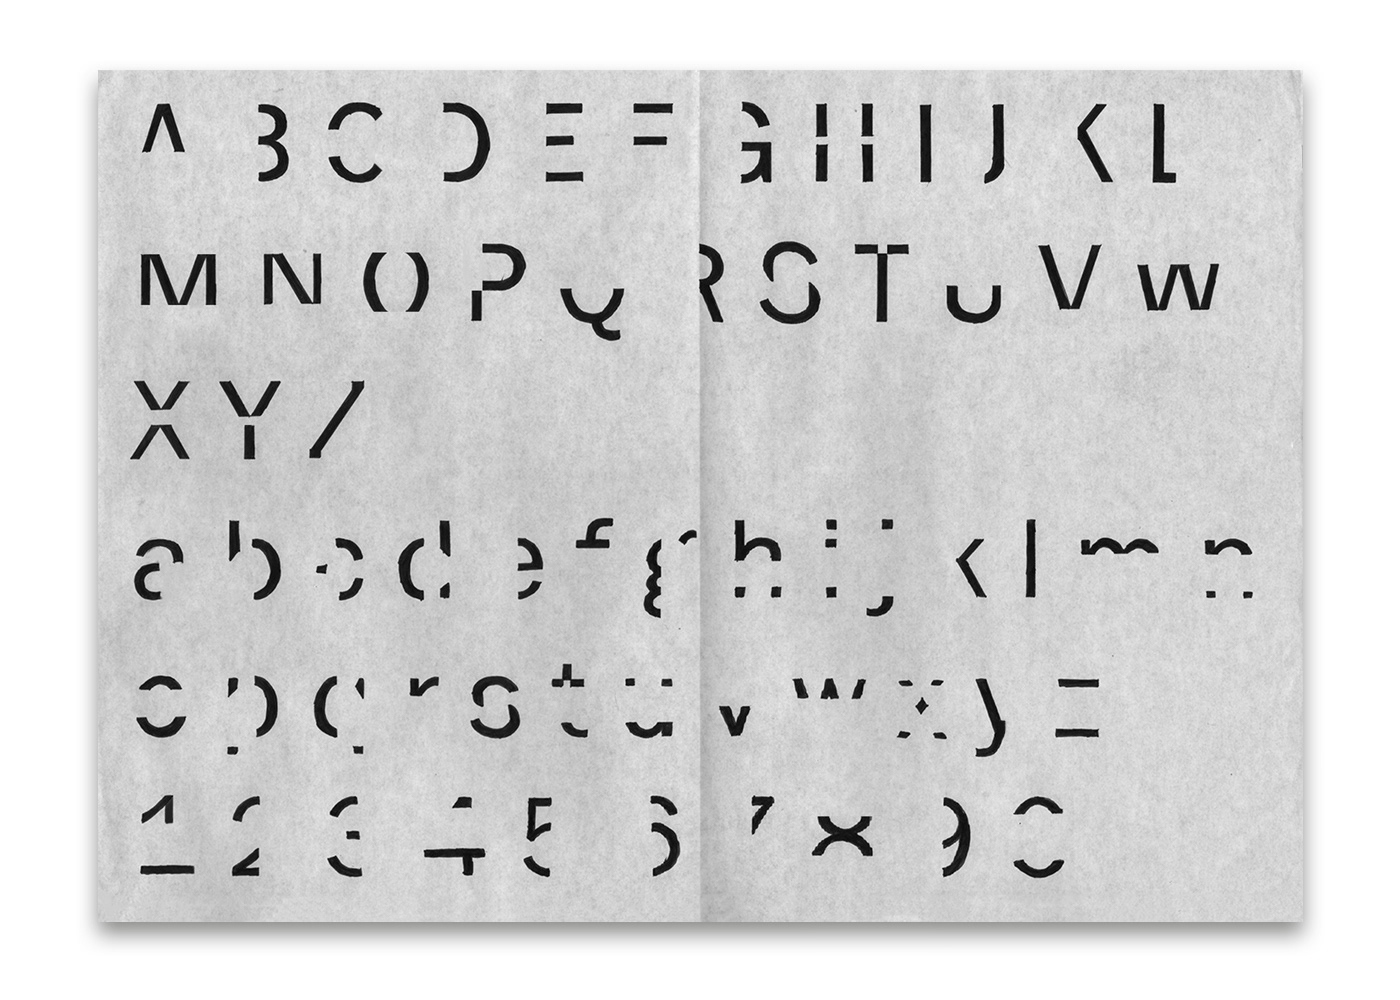 A B C D E F G H I J K L
M N O P Q R S T U V W
X Y Z
a b c d e f g h i j k l m n
o p q r s t u v w x y z
1 2 3 4 5 6 7 8 9 0